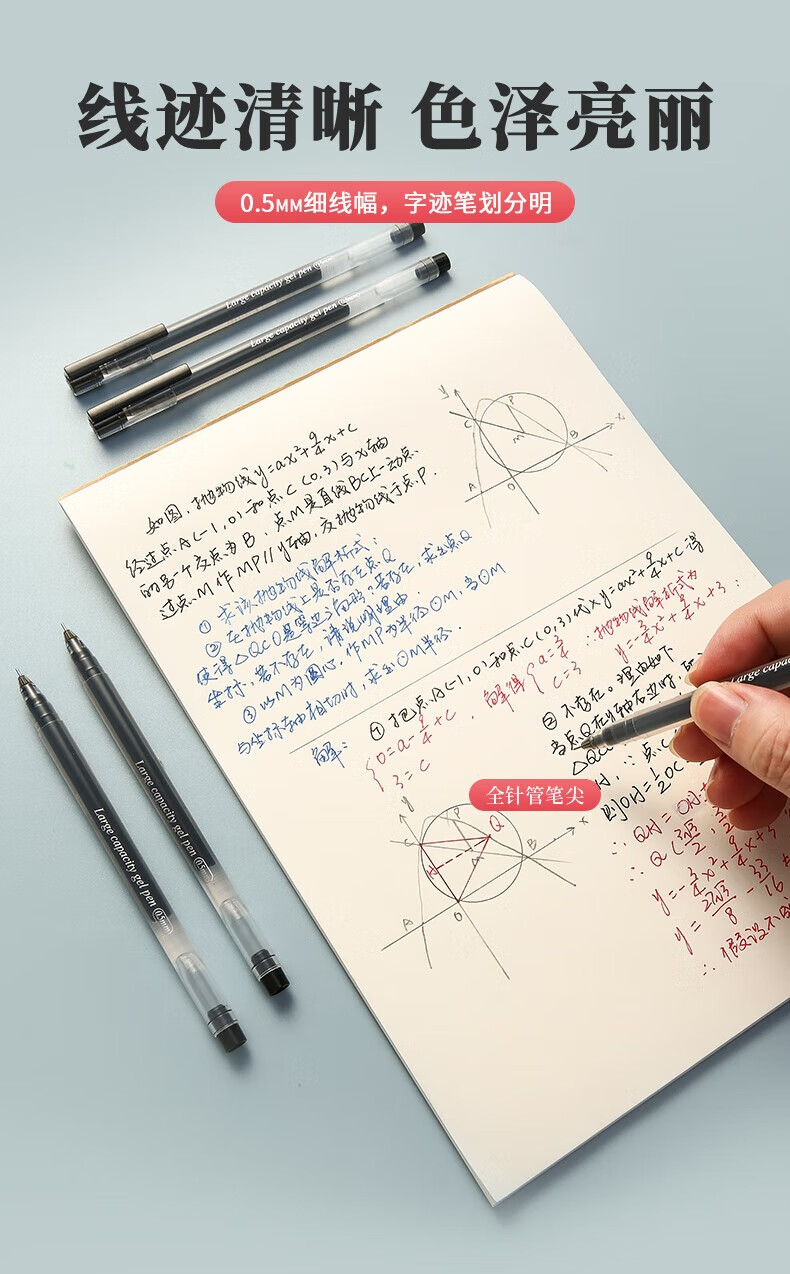 线迹清晰 色泽亮丽
0.5MM细线幅，字迹笔划分明
Large capacity gel pen 0.5mm
Large capacity gel pen 0.5mm
如图，抛物线y=ax²+9/4x+c
经过点A(-1,0)和点C(0,3)与x轴
的另一个交点为B，点M是直线BC上一动点，
过点M作MP//y轴，交抛物线于点P.
① 求该抛物线解析式；
② 在抛物线上是否存在点Q
使得△QCO是等边三角形？若存在，求出点Q
坐标，若不存在，请说明理由.
③ 以M为圆心，作MP为半径⊙M，当⊙M
与坐标轴相切时，求出⊙M半径.
解：
① 把点A(-1,0)和点C(0,3)代入y=ax²+9/4x+c得
{0=a-9/4+c
3=c
，解得{a=-3/4
c=3
∴抛物线解析式为
y=-3/4x²+9/4x+3；
② 不存在。理由如下
当点Q在y轴右边时，
△QCO
则OH=1/2OC
∴QH=OH
∴Q(3√3/2,
y=-3/4x²+9/4x+3
y=27√3/8-33/16
∴假设不
y
P
C
M
B
x
A
O
全针管笔尖
y
P
C
Q
H
M
B
x
A
O
Large capac
Large capacity gel pen 0.5mm
Large capacity gel pen 0.5mm